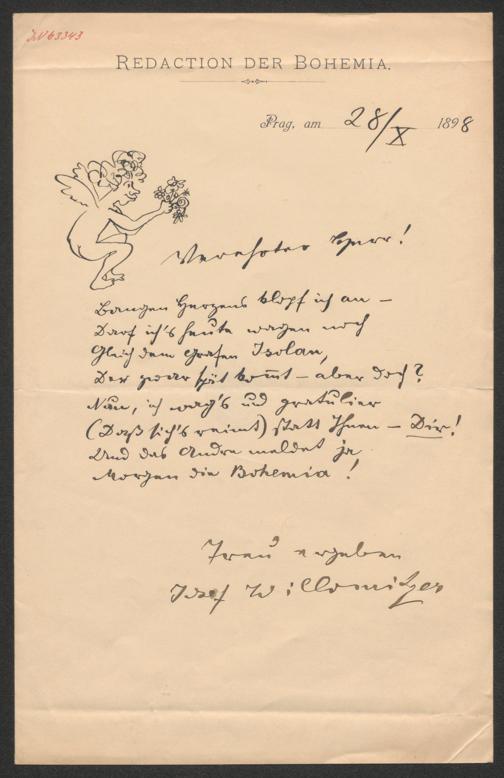 JN 63343
REDACTION DER BOHEMIA.
Prag, am 28/X 1898
Verehrter Herr!
Bangen Herzens klopf ich an –
Darf ich's heute wagen noch
Gleich dem Grafen Isolan,
Der zwar spät kom̅t – aber doch?
Nun, ich wag's und gratulier
(Daß sich's reimt) statt Ihnen – Dir!
Und das Andre meldet ja
Morgen die Bohemia!
Treu ergeben
Josef Willomitzer